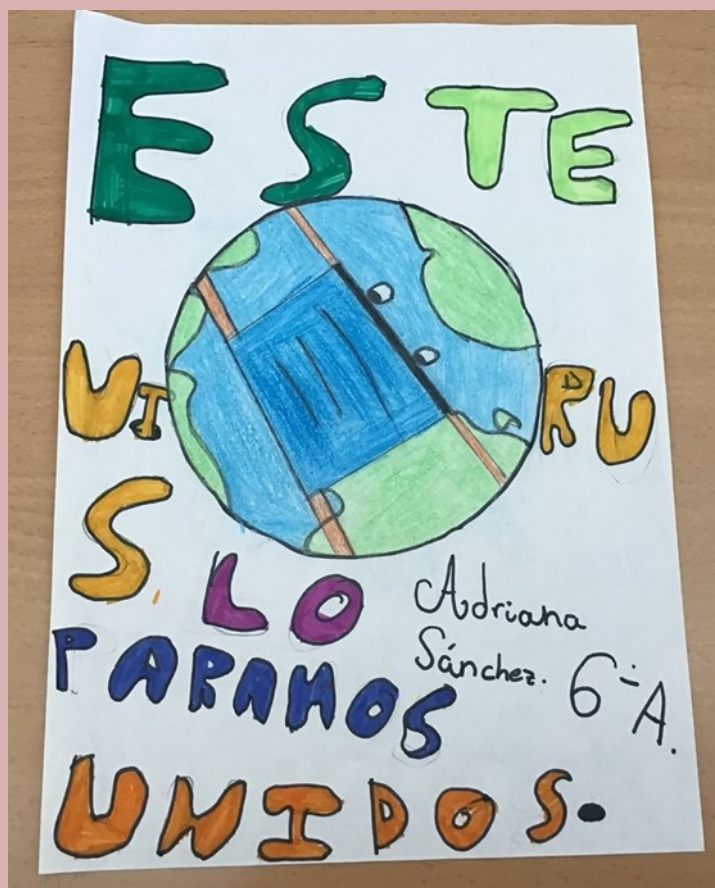 ESTE
VIRUS
LO
PARAMOS
UNIDOS.
Adriana
Sánchez.
6ºA.